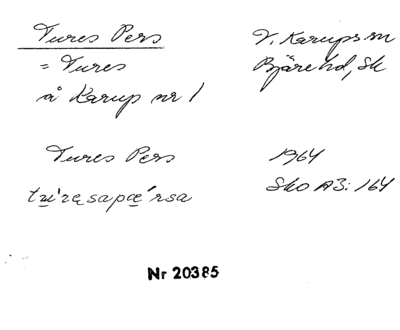 Tures Pers
V. Karups sn
= Tures
Bjäre hd, Sk
å Karup nr 1
Tures Pers
1964
Sko A3: 164
Nr 20385